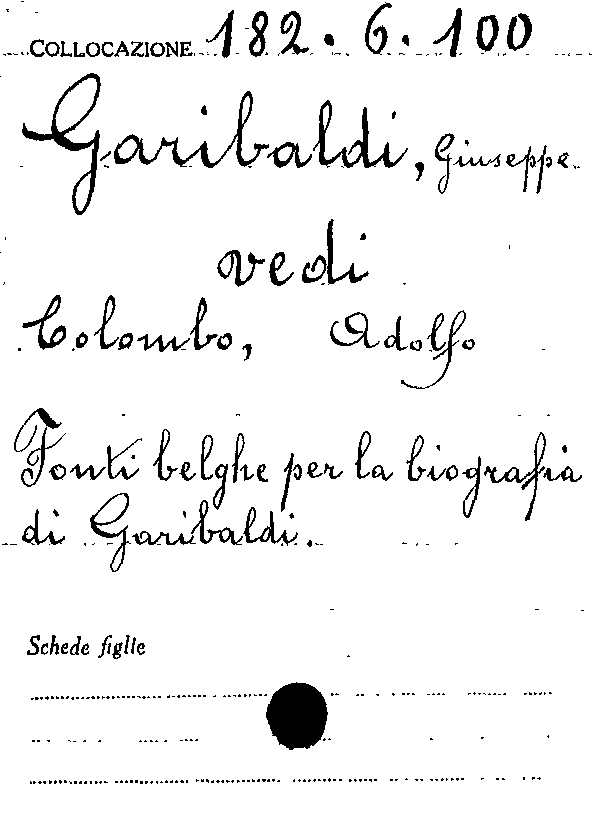 COLLOCAZIONE 182.6.100
Garibaldi, Giuseppe
vedi
Colombo, Adolfo
Fonti belghe per la biografia
di Garibaldi.
Schede figlie